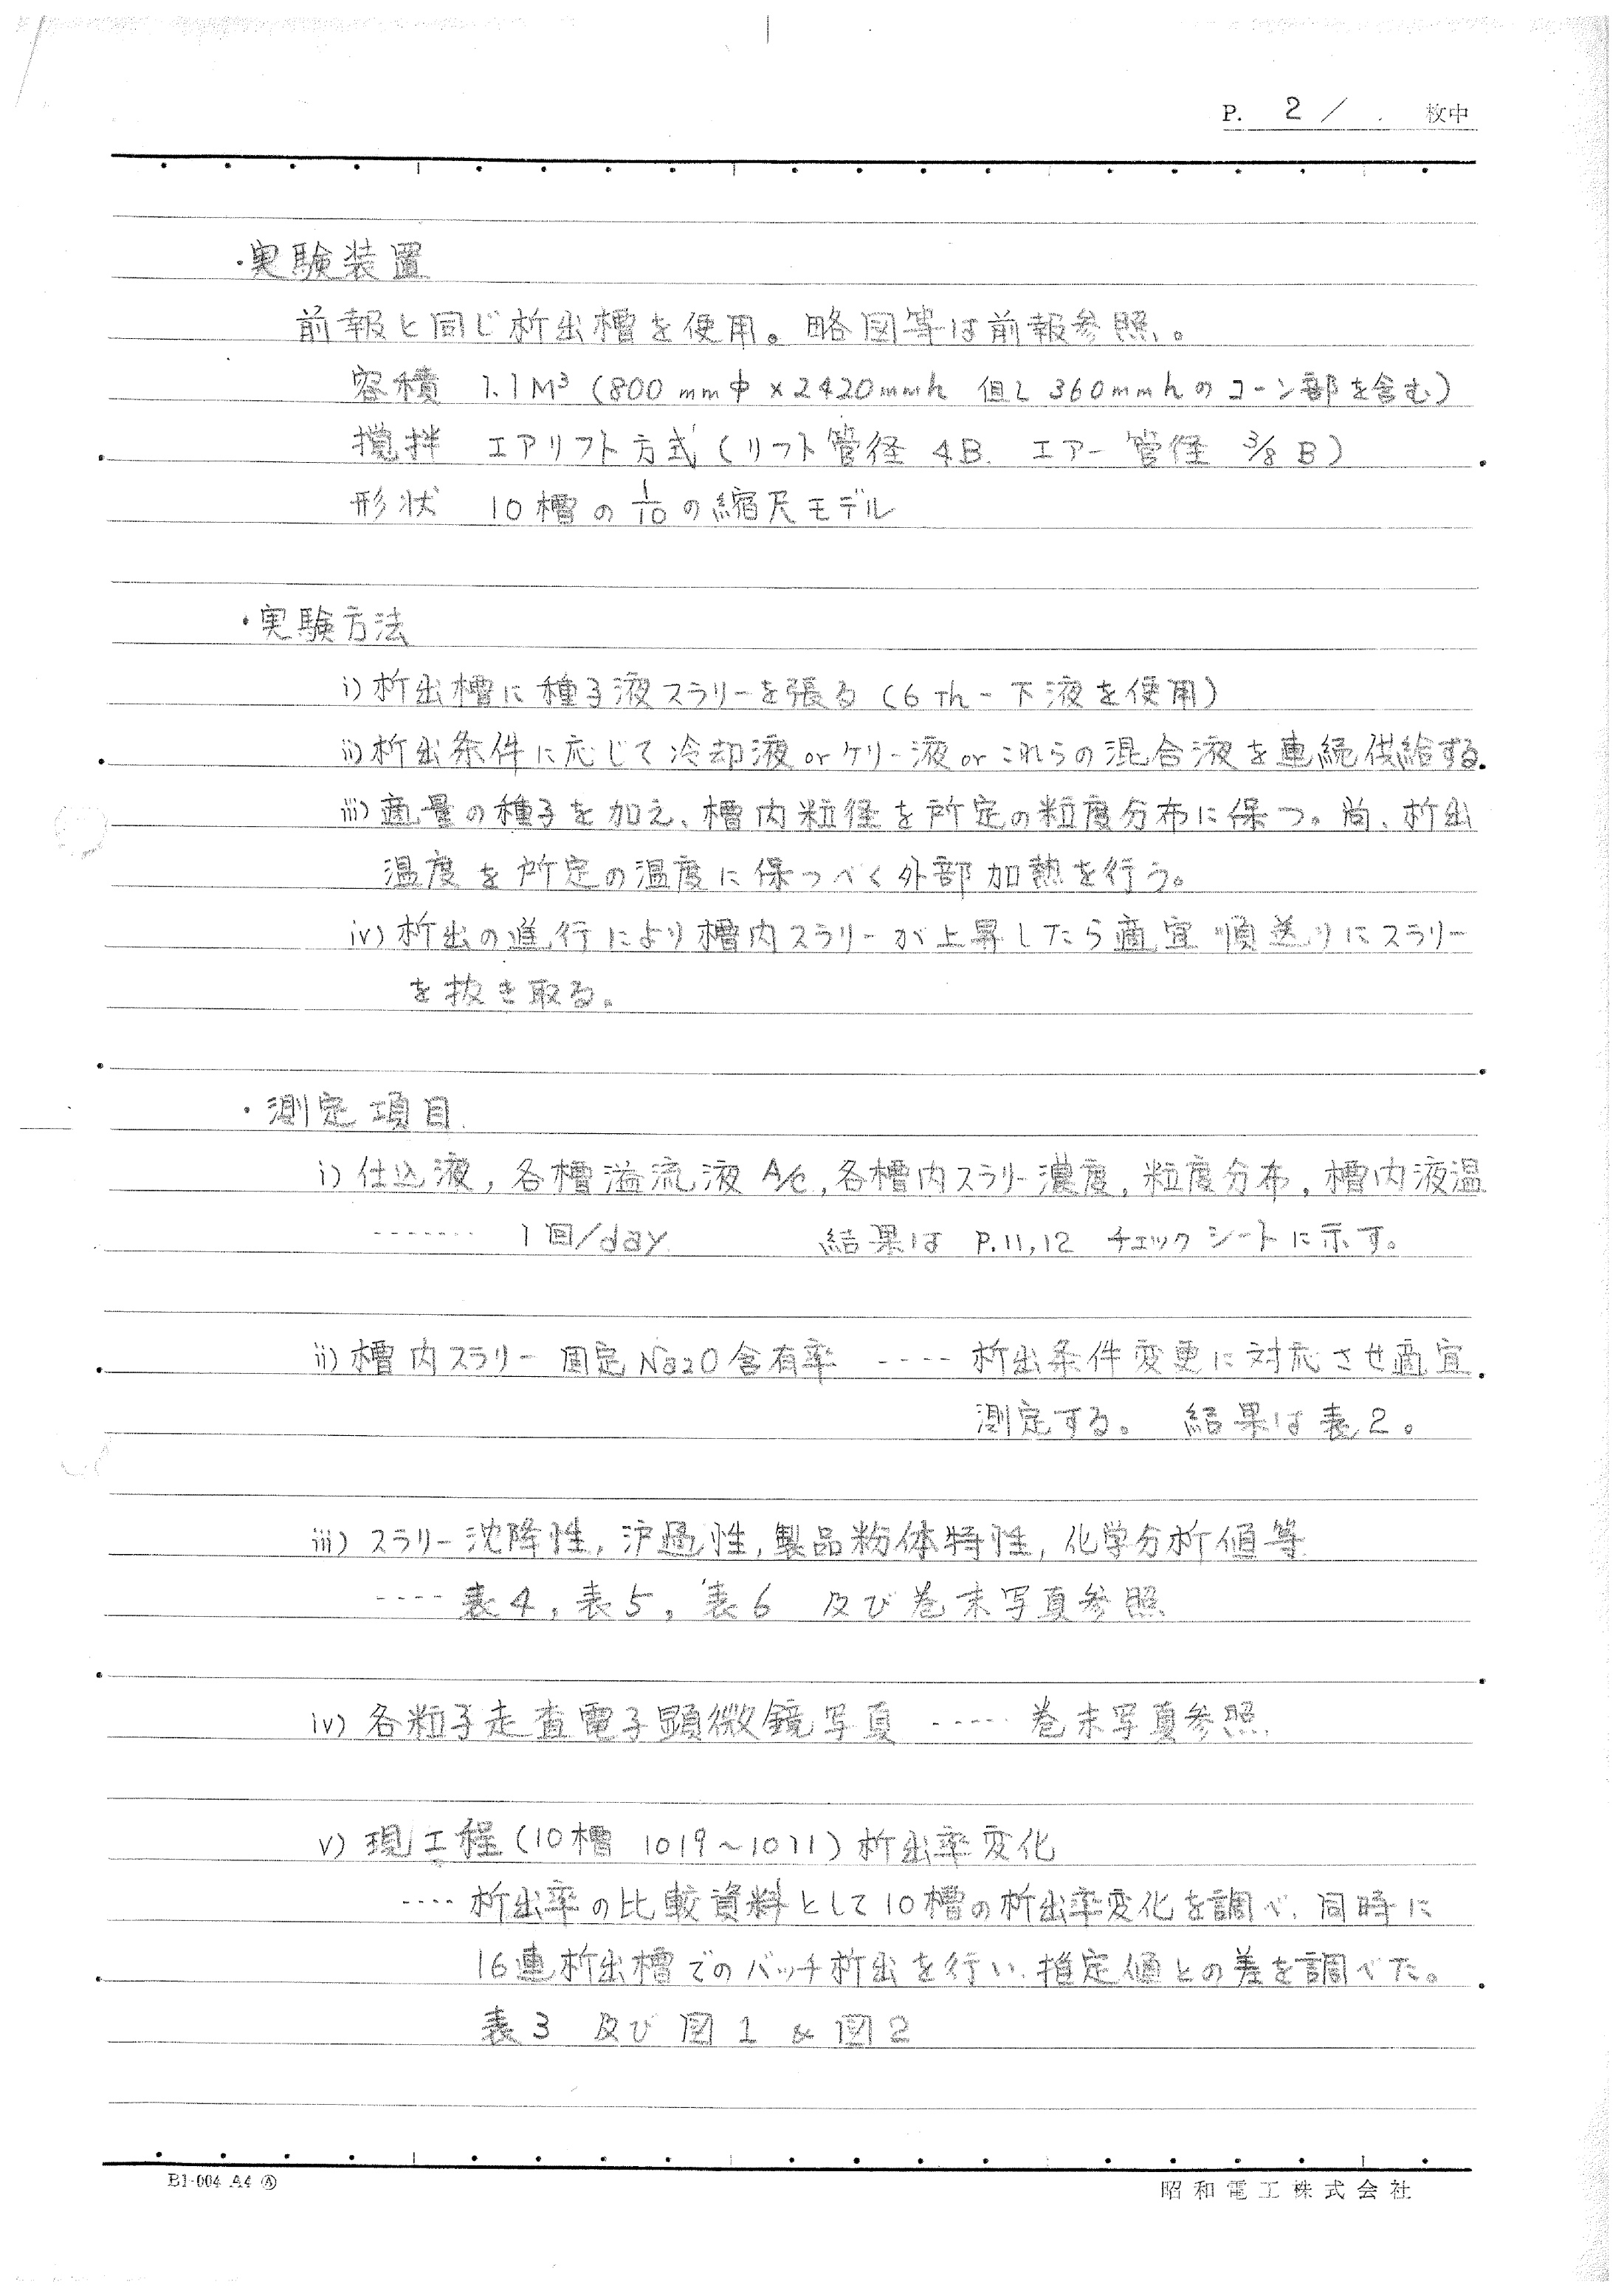 P. 2 / 枚中
・実験装置
前報と同じ析出槽を使用。略図等は前報参照。
容積 1.1M³ (800mmφ×2420mmh 但し360mmhのコーン部を含む)
撹拌 エアリフト方式(リフト管径 4B. エアー管径 3/8 B)
形状 10槽の1/10の縮尺モデル
・実験方法
i) 析出槽に種子液スラリーを張る(6Th-下液を使用)
ii) 析出条件に応じて冷却液orケリー液orこれらの混合液を連続供給する.
iii) 適量の種子を加え、槽内粒径を所定の粒度分布に保つ。尚、析出
温度を所定の温度に保つべく外部加熱を行う。
iv) 析出の進行により槽内スラリーが上昇したら適宜順送りにスラリー
を抜き取る。
・測定項目
i) 仕込液, 各槽溢流液 A/C, 各槽内スラリー濃度, 粒度分布, 槽内液温
------- 1回/day 結果は P.11,12 チェックシートに示す。
ii) 槽内スラリー固定Na2O含有率 ---- 析出条件変更に対応させ適宜
測定する。 結果は表2。
iii) スラリー沈降性, 沪過性, 製品粉体特性, 化学分析値等
---- 表4, 表5, 表6 及び巻末写真参照
iv) 各粒子走査電子顕微鏡写真 ----- 巻末写真参照.
v) 現工程(10槽 1019~1011)析出率変化
---- 析出率の比較資料として10槽の析出率変化を調べ、同時に
16連析出槽でのバッチ析出を行い、推定値との差を調べた。
表3 及び 図1 & 図2
B1-004 A4 Ⓐ
昭和電工株式会社